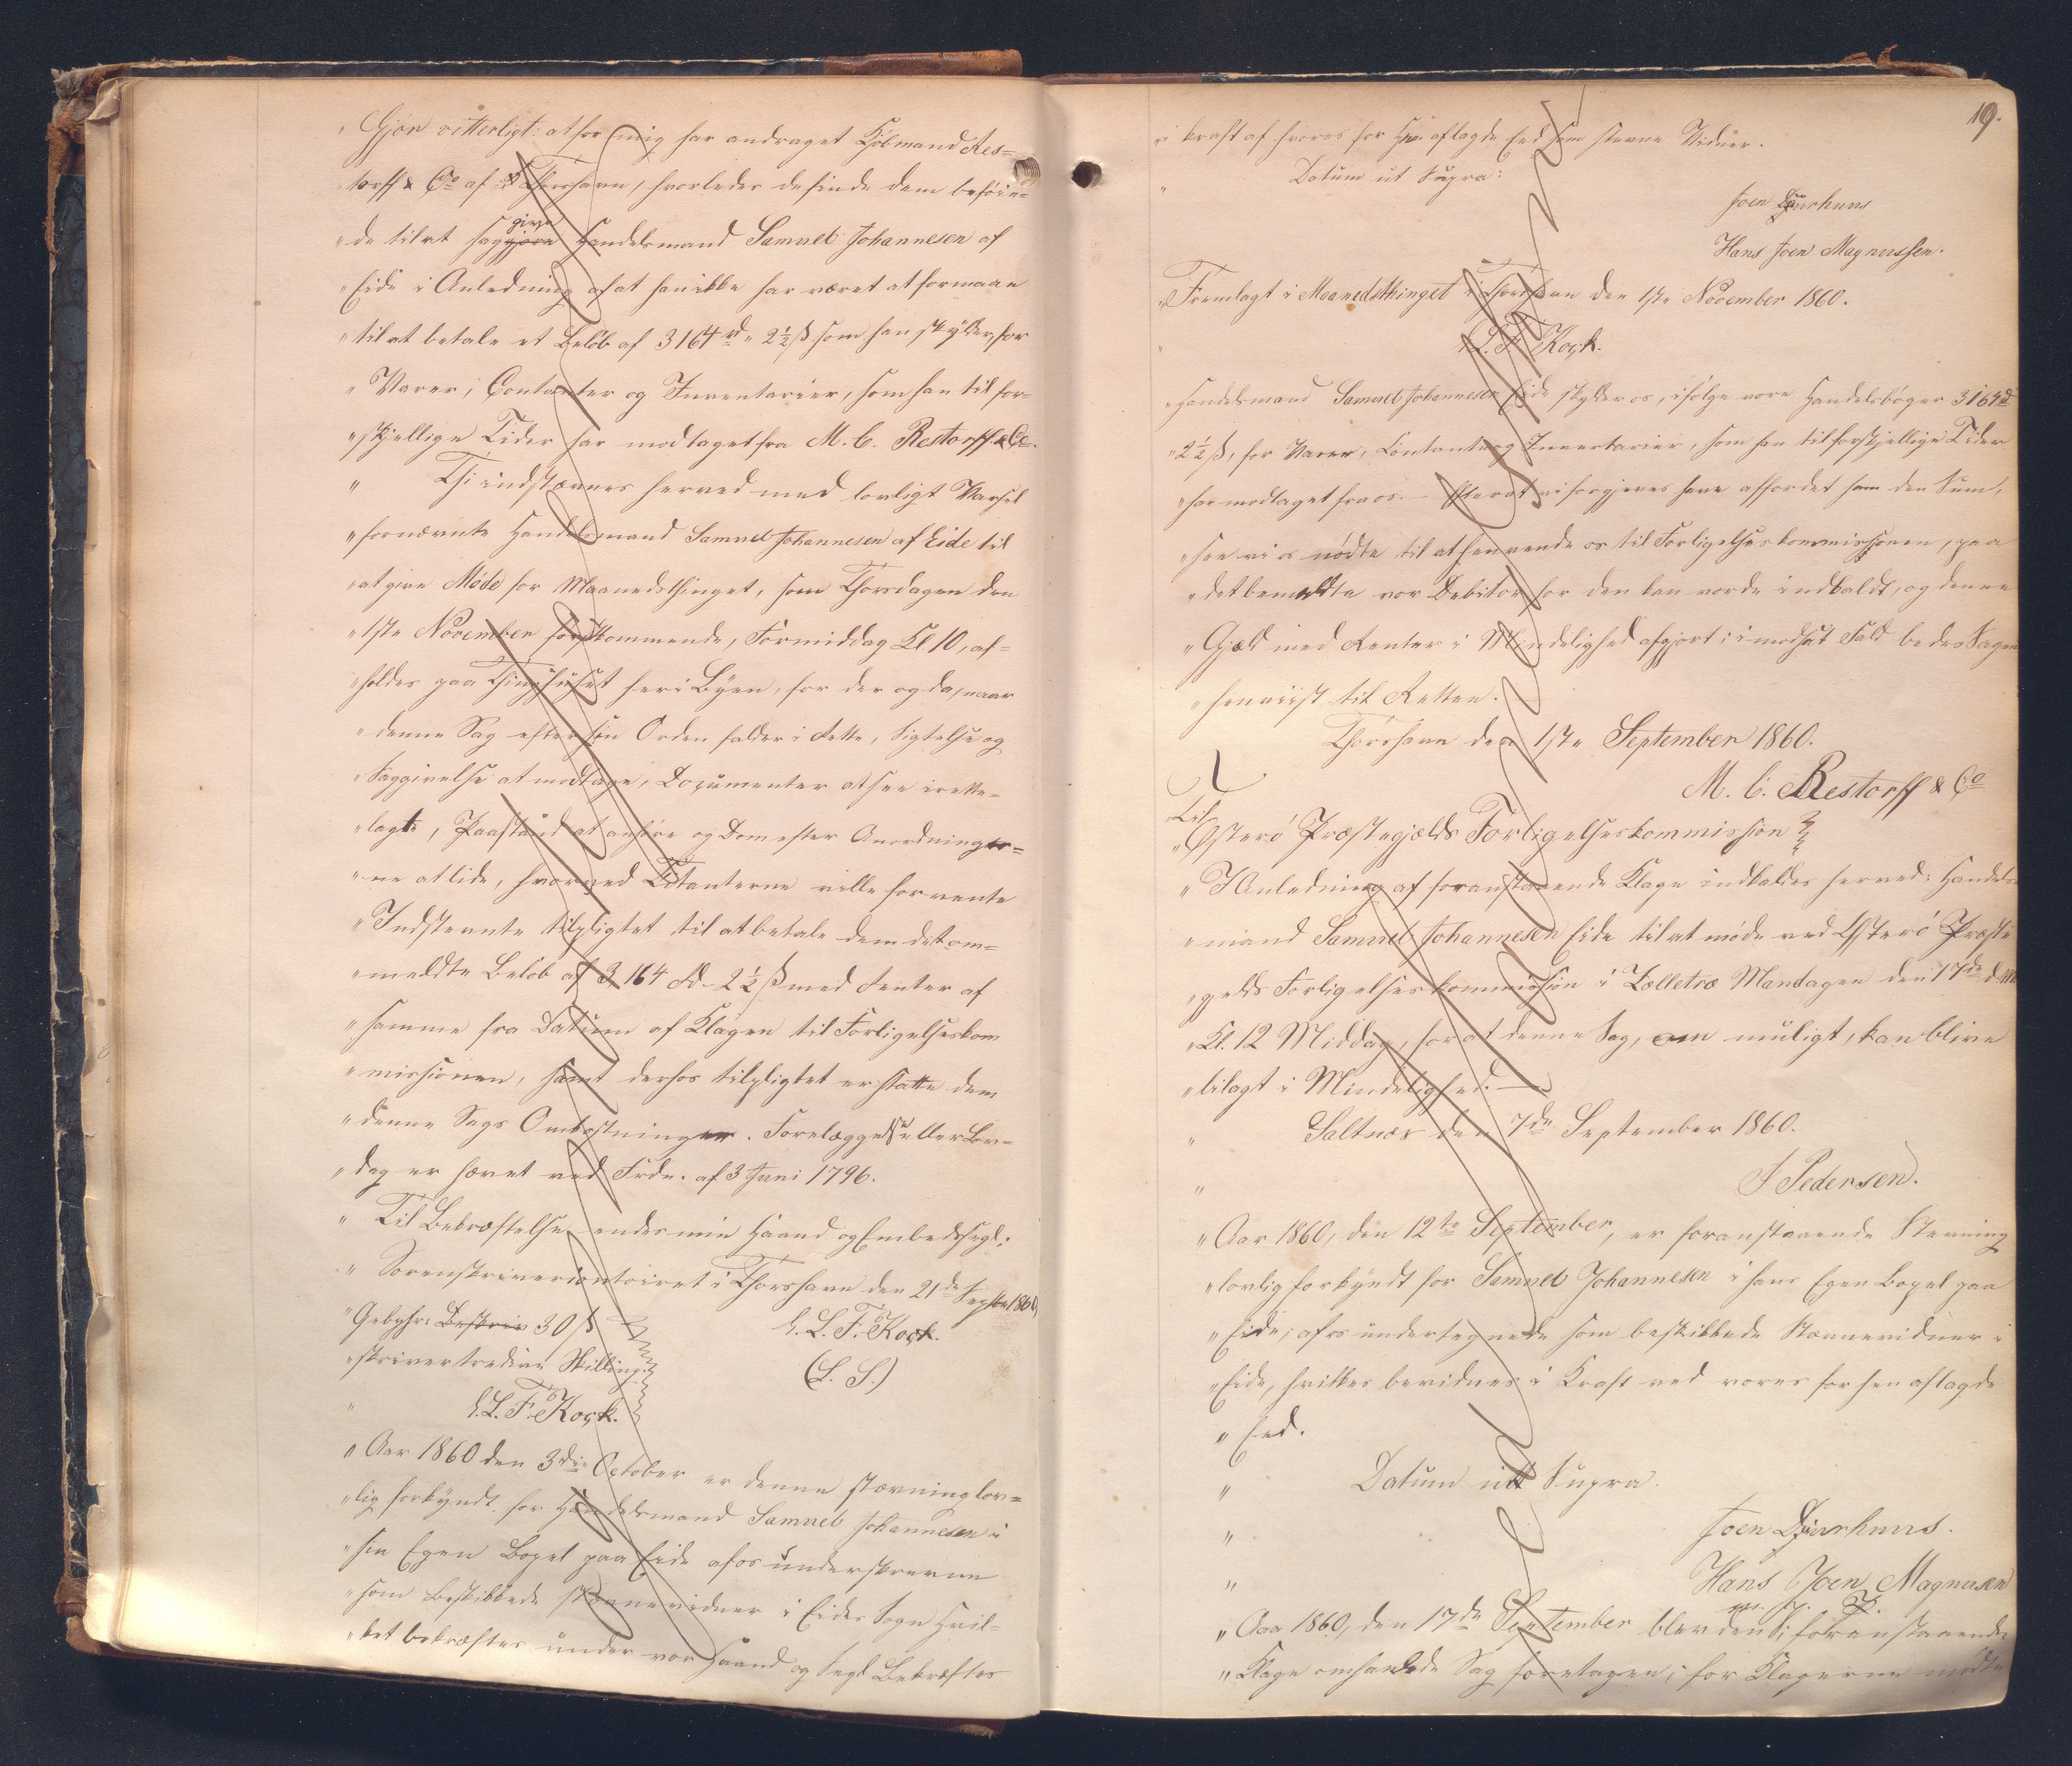 „Gjør vitterligt: at for mig har andraget Kjøbmand Res=
„torff & Co af Thorshavn, hvorledes de finde dem beføie=
„de til at sag give Handelsmand Samuel Johannesen af
„Eide i Anledning af at han ikke har været at formaae
„til at betale et Beløb af 3164 rd „ 2½ ß som han skylder for
„Varer, Contanter og Inventarier, som han til for=
„skjellige Tider har modtaget fra M. C. Restorff & Co.
„ Thi indstævnes herved med lovligt Varsel
„fornævnte Handelsmand Samuel Johannesen af Eide til
„at give Møde for Maanedsthinget, som Thorsdagen den
„1ste November førstkommende, Formiddag Kl 10, af=
„holdes paa Thinghuset her i Byen, for der og da, naar
„denne Sag efter sin Orden falder i Rette, Sigtelse og
„Saggivelse at modtage, Documenter at see irette=
„lagte, Paastand at anhøre og Dom efter Anordninger=
„ne at lide, hvorved Citanterne ville forvente
„Indstevnte tilpligtet til at betale dem det om=
„meldte Beløb af 3164 Rd 2½ ß med Renter af
„samme fra Datum af Klagen til Forligelseskom
„missionen, samt derhos tilpligtet erstatte dem
„denne Sags Omkostninger. Forelæggelse eller Lov=
„dag er hævet ved Frdn. af 3 Juni 1796.
„ Til Bekræftelse under min Haand og Embedssegl.
„ Sorenskrivercontoiret i Thorshavn den 21de Septbr 1860,
„Gebyhr: Beskriv 30 ß H. L. F. Kock.
„skriver tredive Skilling. (L. S.)
„ H. L. F. Kock.
„Aar 1860 den 3die October er denne stævning lov=
„lig forkyndt for Handelsmand Samuel Johannesen i
„sin Egen Bopel paa Eide af os underskrevne
„som beskikkede stævnevidner i Eides Sogn Hvil=
„ket bekræftes under vor Haand og Segl Bekræftes
19.
„i kraft af vores for Hen aflagde Eed som stevne Vidner.
„ Datum ut Supra:
Joen Djurhuus
Hans Joen Magnussen.
„Fremlagt i Maanedsthinget i Thorshavn den 1ste November 1860.
„ H. L. F. Kock.
„Handelsmand Samuel Johannesen Eide skylder os, ifølge vore Handelsbøger 3164 rd
„2½ ß, for Varer, Contanter og Inventarier, som han til forskjellige Tider
„har modtaget fra os. – Efter at vi forgjeves have affordret ham den Sum,
„see vi os nødte til at henvende os til Forligelseskommissionen, paa
„det bemeldte vor Debitor for den kan vorde indkaldt, og denne
„Gjæld med Renter i Mindelighed afgjort; i modsat Fald bedes Sagen
„henviist til Retten.
Thorshavn den 1ste September 1860.
M. C. Restorff & Co
Til
„Østerø Præstegjælds Forligelseskommission
„I Anledning af foranstaaende Klage indkaldes herved: Handels=
„mand Samuel Johannesen Eide til at møde ved Østerø Præste
„gelds Forligelseskommission i Zelletræ Mandagen den 17de d. M.
„Kl. 12 Middag, for at denne Sag, om muligt, kan blive
„bilagt i Mindelighed. —
„ Saltnæs den 7de September 1860.
„ J Pedersen.
„Aar 1860, den 12te September, er foranstaaende Stevning
„lovlig forkyndt for Samuel Johannesen i hans Egen Bopel paa
„Eide, af os undertegnede som beskikkede Stævnevidner i
„Eide, hvilket bevidnes i Kraft ved vores forhen aflagde
„Eed.
„ Datum ut Supra.
„ Joen Djurhuus.
„ Hans Joen Magnusen
„Aar 1860, den 17de September blev den i foranstaaende
„Klage omhandlede Sag foretagen; for Klagerne mødte